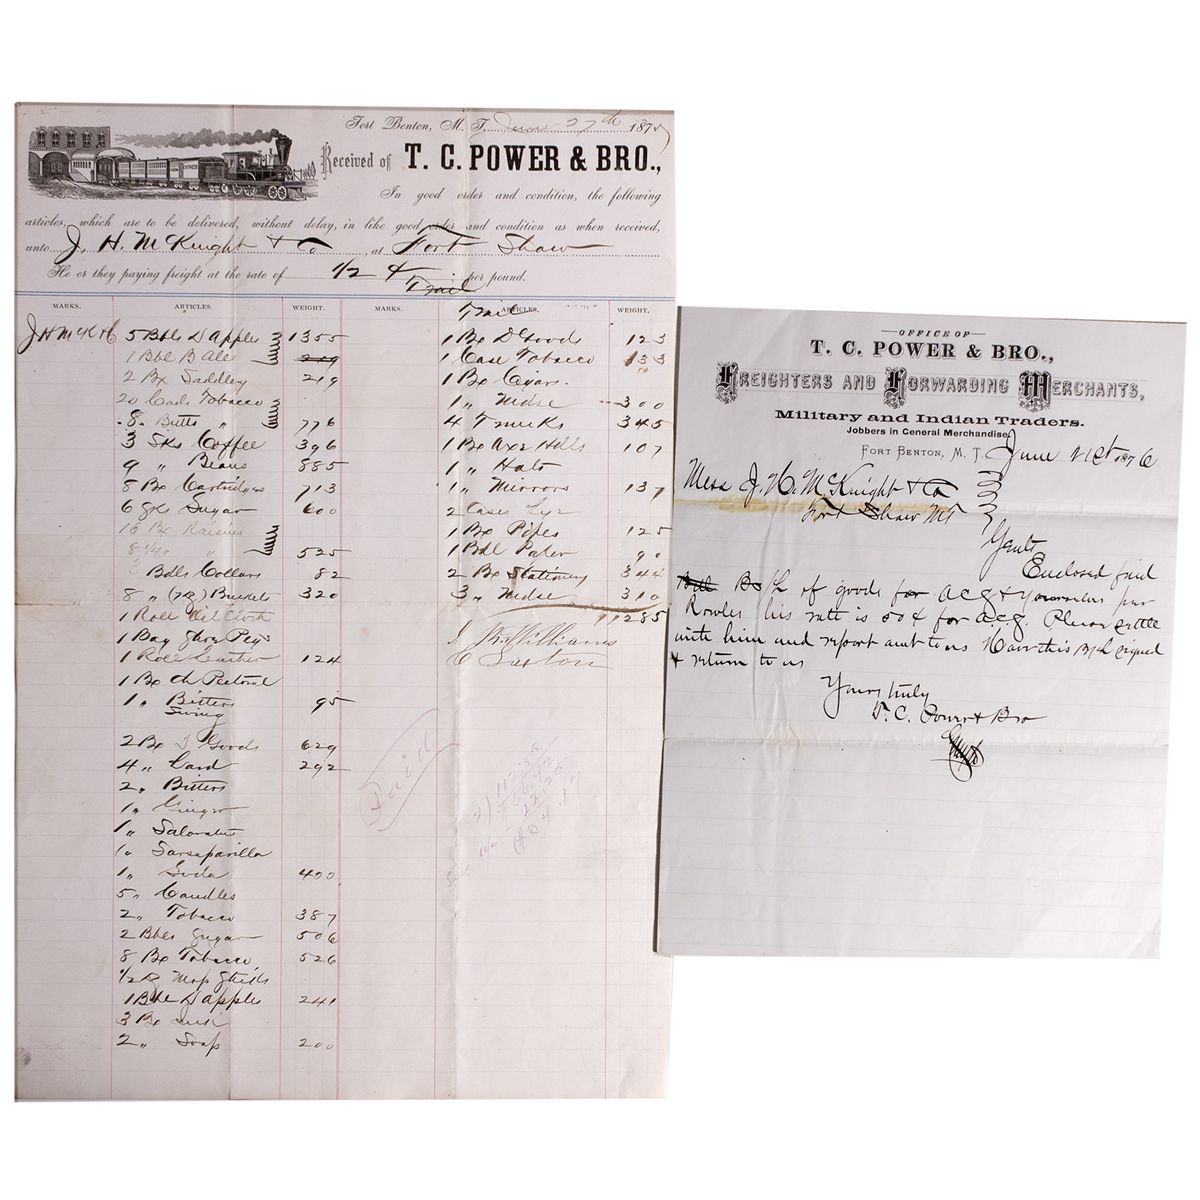 Fort Benton, M. T. June 27th 1875
Received of T. C. POWER & BRO.,
In good order and condition, the following
articles, which are to be delivered, without delay, in like good order and condition as when received,
unto J. H. McKnight & Co, at Fort Shaw
He or they paying freight at the rate of 1/2 ¢ per pound.
Trail
MARKS. ARTICLES. WEIGHT.
J H McK & Co 5 Bbls D Apples 1355
1 Bbl B Ale 219
2 Bx Saddley 219
20 Cads Tobacco
8 Butts " 776
3 Sks Coffee 396
9 " Beans 885
8 Bx Cartridges 713
6 Sugar 600
16 Bx Raisins
8 1/4 " " 525
3 Bdls Collars 82
8 " Buckets 320
1 Roll Oil Cloth
1 Bag Shoe Pegs
1 Roll Leather 124
1 Bx Ch Pectoral
1 " Bitters 95
Swing
2 Bx D Goods 629
4 " Lard 292
2 " Bitters
1 " Ginger
1 " Salaratus
1 " Sarsaparilla
1 " Soda 400
5 " Candles
2 " Tobacco 387
2 Bbls Sugar 506
8 Bx Tobacco 526
1/2 Mop Sticks
1 Bbl D apples 241
3 Bx
2 " Soap 200
MARKS. ARTICLES. WEIGHT.
Trail
1 Bx D Goods 123
1 Case Tobacco 133
1 Bx Cigars
1 " Mdse 300
4 Trunks 345
1 Bx Axe Hdls 107
1 " Hats
1 " Mirrors 137
2 Cases Lye
1 Bx Pipes 125
1 Bdl Paper 90
2 Bx Stationery 344
3 " Mdse 310
11285
J Williams
Paid
OFFICE OF
T. C. POWER & BRO.,
FREIGHTERS AND FORWARDING MERCHANTS,
Military and Indian Traders.
Jobbers in General Merchandise
FORT BENTON, M. T. June 21st 1876
Mess J. H. McKnight & Co
Fort Shaw MT
Gents
Enclosed find
B/L of goods for a.c.g & yourselves per
Rowles his rate is 50 ¢ for a.c.g. Please settle
with him and report amt to us Have this B/L signed
& return to us
Yours truly
T. C. Power & Bro